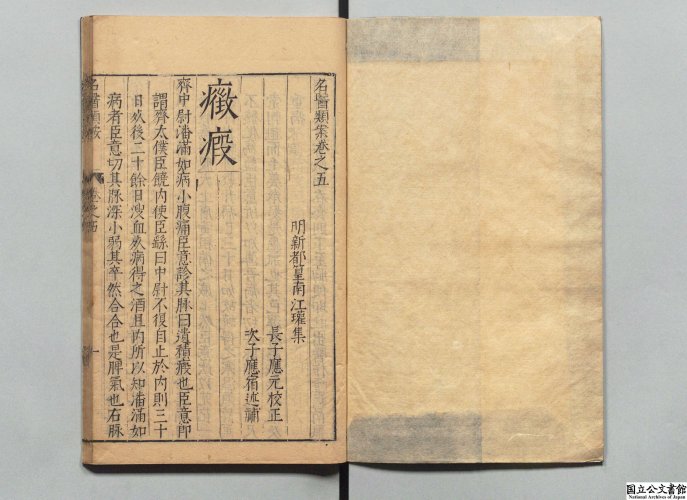 名醫類案卷之五
明新都篁南江瓘集
長子應元校正
次子應宿述補
癥瘕
齊中尉潘滿如病小腹痛臣意診其脉曰遺積瘕也臣意即
謂齊太僕臣饒內使臣繇曰中尉不復自止於內則三十
日死後二十餘日溲血死病得之酒且內所以知潘滿如
病者臣意切其脉深小弱其卒然合合也是脾氣也右脉
名醫類案
一
国立公文書館
National Archives of Japan